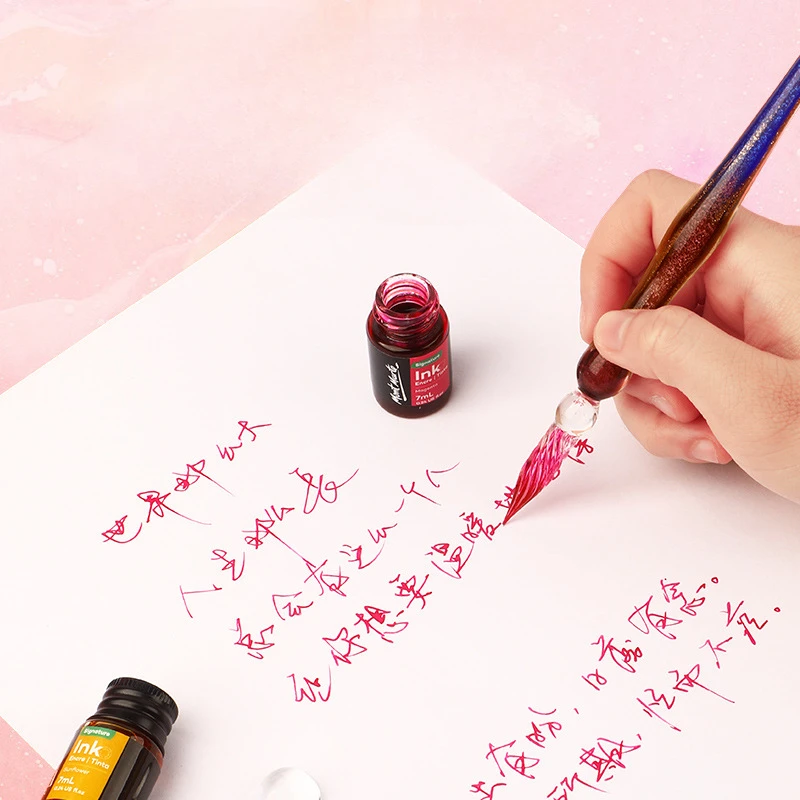 Mont Marte
Signature
Ink
Encre | Tinta
Magenta
7mL
0.24 US fl.oz
世界那么大
人生那么长
总会有这么一个人
让你想要温
出有盼，日落有念。
所期，忙而不茫。
Signature
Ink
Encre | Tinta
Sunflower
7mL
0.24 US fl.oz